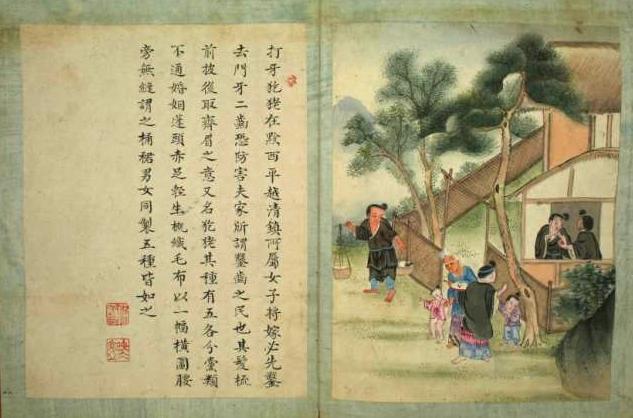 打牙犵狫在黔西平越清鎮所屬女子將嫁必先鑿
去門牙二齒恐防害夫家所謂鑿齒之民也其髮梳
前披後取齊眉之意又名犵狫其種有五各分黨類
不通婚姻蓬頭赤足輕生梳織毛布以一幅橫圍腰
旁無縫謂之桶裙男女同製五種皆如之